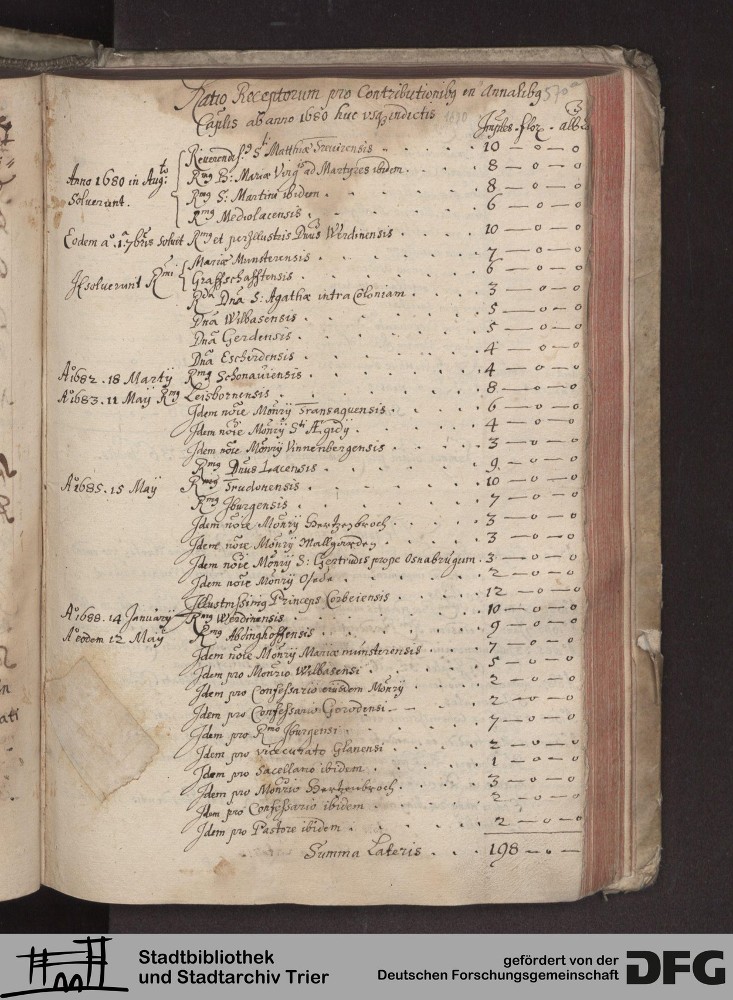 Ratio Receptorum pro Contributionibg en Annalibg 570
Caplis ab anno 1680 huc usq indictis 3
Imples. flor. albs
Anno 1680 in Aug: to solverunt.
Reverendss. Sti Matthiæ Trevirensis . . . 10 — 0 — 0
Rmg B: Mariæ Virgs ad Martyres ibidem . . . 8 — 0 — 0
Rmg S: Martini ibidem . . . 8 — 0 — 0
Rmg Mediolacensis . . . 6 — 0 — 0
Eodem ao. 1a. 7bris solvit Rmg et perillustris Dnus Werdinensis . . . 10 — 0 — 0
Jt solverunt Rmi
Mariæ Munsterensis . . . 7 — 0 — 0
Graffschafftensis . . . 6 — 0 — 0
Rda Dna S: Agathæ intra Coloniam . . . 3 — 0 — 0
Dna Wilbasensis . . . 5 — 0 — 0
Dna Gerdensis . . . 5 — 0 — 0
Dna Escherdensis . . . 4 — 0 — 0
Ao 1682. 18 Martÿ Rmg Schonaviensis . . . 4 — 0 — 0
Ao 1683. 11 Maÿ Rmg Leisbornensis . . . 8 — 0 — 0
Jdem noie Monrÿ Transaquensis . . . 6 — 0 — 0
Jdem noie Monrÿ Sti Ægidÿ . . . 4 — 0 — 0
Jdem noie Monrÿ Vinnenbergensis . . . 3 — 0 — 0
Rmg Dnus Lacensis . . . 9 — 0 — 0
Ao 1685. 15 Maÿ Rmg Trudonensis . . . 10 — 0 — 0
Rmg Jburgensis . . . 7 — 0 — 0
Jdem noie Monrÿ Hertzenbroch . . . 3 — 0 — 0
Jdem noie Monrÿ Mallgarden . . . 3 — 0 — 0
Jdem noie Monrÿ S: Gertrudis prope Osnabrugum . 3 — 0 — 0
Jdem noie Monrÿ Oseda . . . 2 — 0 — 0
Jllustrissimg Princeps Corbeiensis . . . 12 — 0 — 0
Ao 1688. 14 Januarÿ Rmg Werdinensis . . . 10 — 0 — 0
Ao eodem 12 Maÿ Rmg Abdinghoffensis . . . 9 — 0 — 0
Jdem noie Monrÿ Mariæ munsterensis . . . 7 — 0 — 0
Jdem pro Monrio Wilbasensi . . . 5 — 0 — 0
Jdem pro Confessario eiusdem Monrÿ . . . 2 — 0 — 0
Jdem pro Confessario Gerodensi . . . 2 — 0 — 0
Jdem pro Rmo Jburgensi . . . 7 — 0 — 0
Jdem pro vicecurato Glanensi . . . 2 — 0 — 0
Jdem pro Sacellano ibidem . . . 1 — 0 — 0
Jdem pro Monrio Hertzenbroch . . . 3 — 0 — 0
Jdem pro Confessario ibidem . . . 2 — 0 — 0
Jdem pro Pastore ibidem . . . 2 — 0 — 0
Summa Lateris . . . 198 — 0 —
Stadtbibliothek
und Stadtarchiv Trier
gefördert von der
Deutschen Forschungsgemeinschaft
DFG